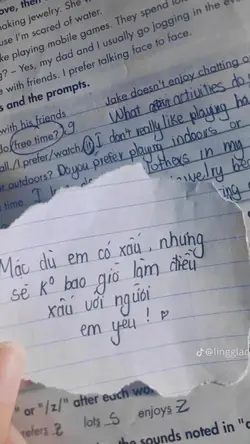 making jewelry. She w
use I'm scared of water.
ke playing mobile games. They spend lon
g? – Yes, my dad and I usually go jogging in the eve
e with friends. I prefer talking face to face.
s and the prompts.
Jake doesn't enjoy chatting o
with his friends
What activities do
do free time? kg
all. / I prefer / watch
I don't really like playing b
r outdoors? Do you prefer playing indoors or
time.
clothes in my
Mặc dù em có xấu, nhưng
sẽ k° bao giờ làm điều
xấu với người
em yêu!
@linggiao
" or "/z/" after each wo
refers z lots s enjoys z
he sounds noted in "